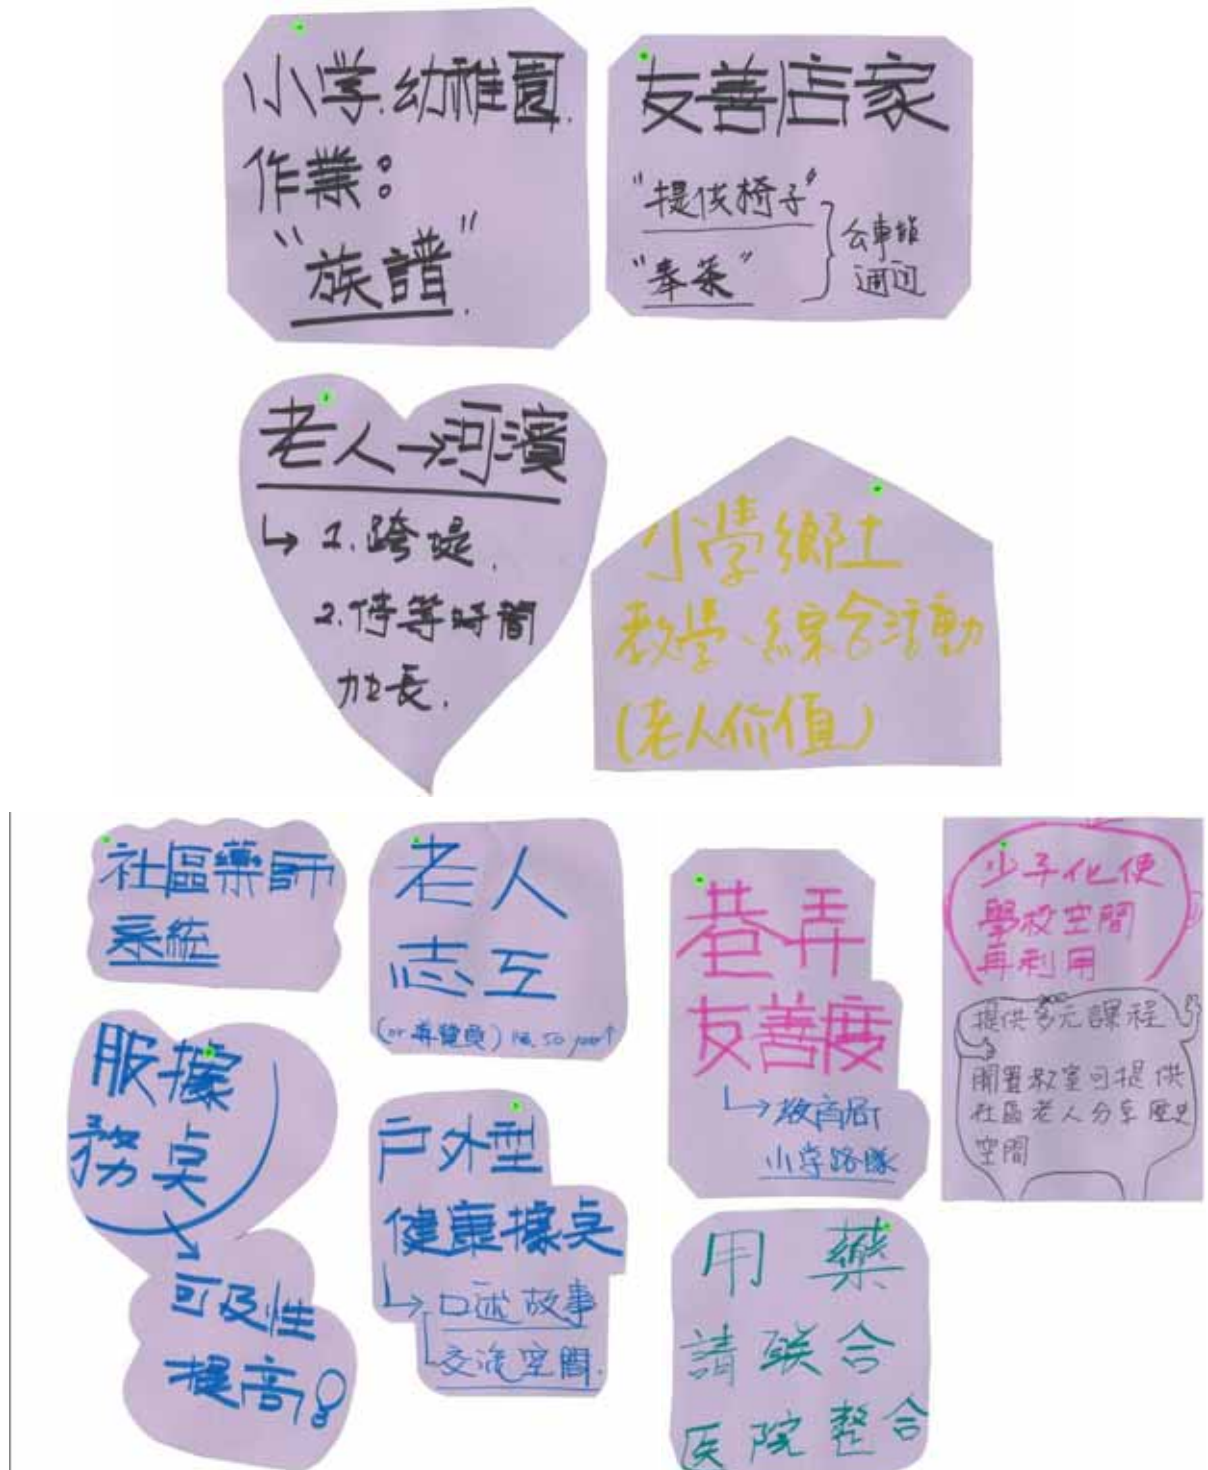 小学.幼稚園.
作業：
"族譜".
友善店家
"提供椅子"
"奉茶"
公車站
週边
老人→河濱
↳ 1.跨堤.
2.停等時間
加長.
小學鄉土
教學、綜合活動
(老人价值)
社區藥師
系統
老人
志工
巷弄
友善度
↳教育局
小学路隊
少子化使
學校空間
再利用
提供多元課程
閒置教室可提供
社區老人分享歷史
空間
服據
務桌
可及性
提高
戶外型
健康據桌
↳口述故事
交流空間.
用藥
請联合
医院整合